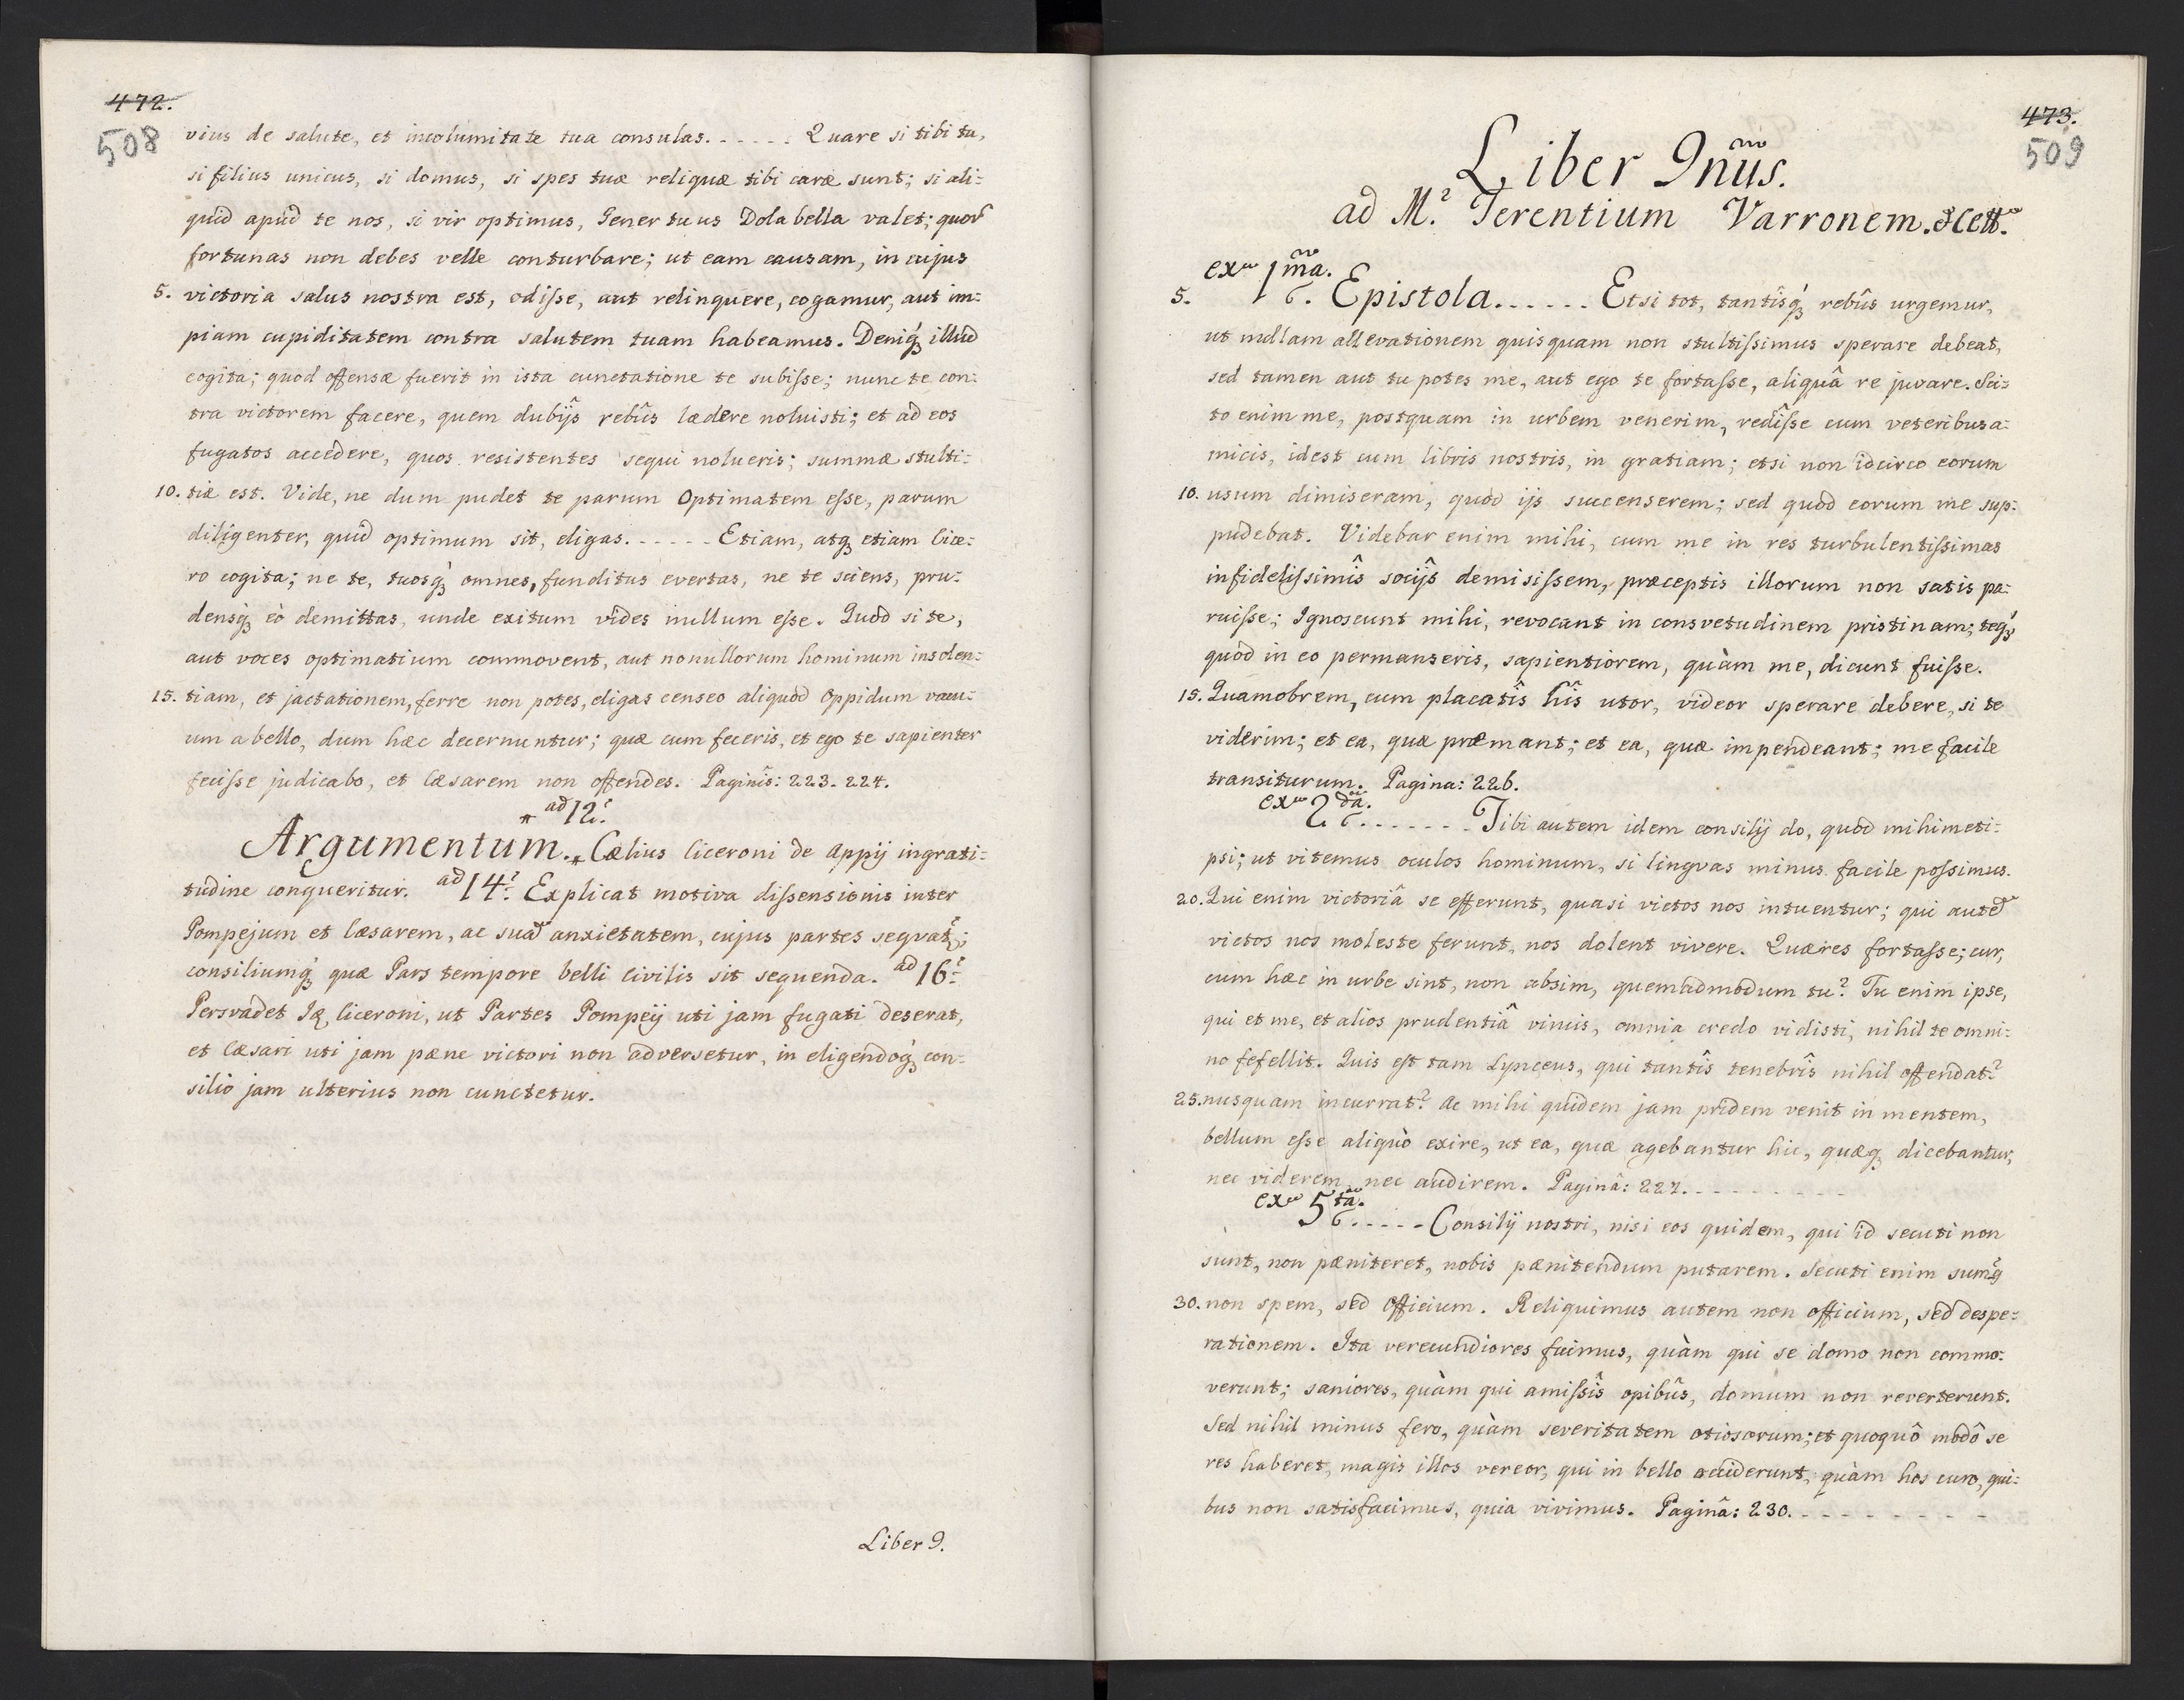 472.
508
vius de salute, et incolumitate tua consulas. - - - - - Quare si tibi tu,
si filius unicus, si domus, si spes tuæ reliquæ tibi caræ sunt; si ali=
quid apud te nos, si vir optimus, Gener tuus Dolabella valet; quor̃
fortunas non debes velle conturbare; ut eam causam, in cujus
5. victoria salus nostra est, odiſse, aut relinquere, cogamur, aut im=
piam cupiditatem contra salutem tuam habeamus. Deniq́ꝫ illud
cogita; quod offensæ fuerit in ista cunctatione te subiſse; nunc te con=
tra victorem facere, quem dubijs̑ rebûs lædere noluisti; et ad eos
fugatos accedere, quos resistentes sequi nolueris; summæ stulti=
10. tiæ est. Vide, ne dum pudet te parum Optimatem eſse, parum
diligenter, quid optimum sit, eligas. - - - - - Etiam, atqꝫ etiam Cice=
ro cogita; ne te, tuosq́ꝫ omnes, funditus evertas, ne te sciens, pru=
densq́ꝫ eò demittas, unde exitum vides nullum eſse. Quod si te,
aut voces optimatium commovent, aut nonullorum hominum insolen=
15. tiam, et jactationem, ferre non potes, eligas censeo aliquod Oppidum vacu=
um a bello, dum hæc decernuntur; quæ cum feceris, et ego te sapienter
feciſse judicabo, et Cæsarem non offendes. Paginîs: 223. 224.
* ad 12.
Argumentum. * Cælius Ciceroni de Appij ingrati=
tudine conqueritur. ad 14. Explicat motiva diſsensionis inter
Pompejum et Cæsarem, ac suam̃ anxietatem, cujus partes seqvat̃;
consiliumq́ꝫ quæ Pars tempore belli Civilis sit sequenda. ad 16.
Persvadet Ciceroni, ut Partes Pompeij uti jam fugati deserat,
et Cæsari uti jam pæne victori non adversetur, in eligendoq́ꝫ con=
silio jam ulterius non cunctetur.
Liber 9.
473.
509
Liber 9nus.
ad M. Terentium Varronem. &Cett.
5. ex 1ma. Epistola. - - - - - Etsi tot, tantîsq́ꝫ rebûs urgemur,
ut nullam allevationem quisquam non stultiſsimus sperare debeat,
sed tamen aut tu potes me, aut ego te fortaſse, aliquâ re juvare. Sci=
to enim me, postquam in urbem venerim, rediſse cum veteribus a=
micis, idest cum libris nostris, in gratiam; etsi non idcirco eorum
10. usum dimiseram, quod ijs succenserem; sed quod eorum me sup=
pudebat. Videbar enim mihi, cum me in res turbulentiſsimas
infideliſsimîs socijs̑ demisiſsem, præceptis illorum non satis pa=
ruiſse; Ignoscunt mihi, revocant in consvetudinem pristinam; teq́ꝫ
quod in eo permanseris, sapientiorem, quàm me, dicunt fuiſse.
15. Quamobrem, cum placatîs hîs utor, videor sperare debere, si te
viderim; et ea, quæ præmant; et ea, quæ impendeant; me facile
transiturum. Pagina: 226.
ex 2da. - - - - - - Tibi autem idem consilij do, quod mihimeti=
psi; ut vitemus oculos hominum, si lingvas minus facile poſsimus.
20. Qui enim victoriâ se efferunt, quasi victos nos intuentur; qui autem̃
victos nos moleste ferunt, nos dolent vivere. Quæres fortaſse; cur,
cum hæc in urbe sint, non absim, quemadmodum tu? Tu enim ipse,
qui et me, et alios prudentiâ vincis, omnia credo vidisti, nihil te omni=
no fefellit. Quis est tam Lynceus, qui tantîs tenebrîs nihil offendat?
25. nusquam incurrat? Ac mihi quidem jam pridem venit in mentem,
bellum eſse aliquò exire, ut ea, quæ agebantur hic, quæqꝫ dicebantur,
nec viderem, nec audirem. Paginâ: 227. - - - - - - - - -
ex 5ta. - - - - - Consilij nostri, nisi eos quidem, qui id secuti non
sunt, non pæniteret, nobis pænitendum putarem. Secuti enim sumꝰ
30. non spem, sed Officium. Reliquimus autem non officium, sed despe=
rationem. Ita verecundiores fuimus, quàm qui se domo non commo=
verunt; saniores, quàm qui amiſsîs opibûs, domum non reverterunt.
Sed nihil minus fero, quàm severitatem otiosorum; et quoquô modô se
res haberet, magis illos vereor, qui in bello acciderunt, quàm hos curo, qui=
bus non satisfacimus, quia vivimus. Paginâ: 230. - - - - - - - -